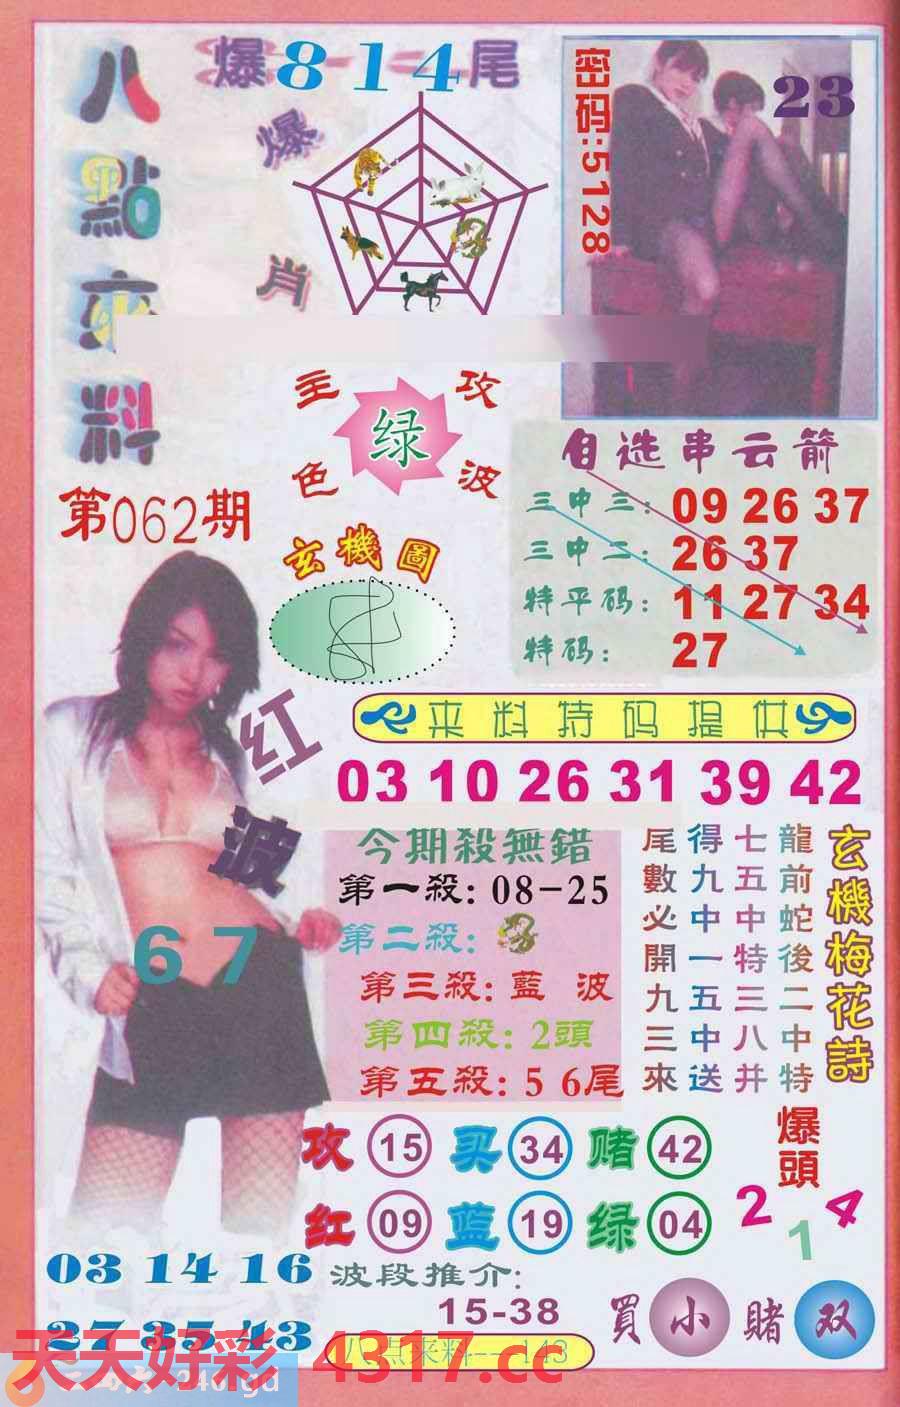 八點來料
爆8-1-4尾
爆肖
密码:5128
23
主攻
绿
色波
第062期
玄機圖
自选串云箭
三中三: 09 26 37
三中二: 26 37
特平码: 11 27 34
特码: 27
红波
67
来料特码提供
03 10 26 31 39 42
今期殺無錯
第一殺: 08-25
第二殺:
第三殺: 藍波
第四殺: 2頭
第五殺: 5 6尾
玄機梅花詩
龍前蛇後二中特
七五中特三八并
得九中一五中送
尾數必開九三來
攻 15 买 34 赌 42
红 09 蓝 19 绿 04
爆頭
2 1 4
03 14 16
27 35 43
波段推介:
15-38
買 小 賭 双
八点来料--143
天天好彩 4317.cc